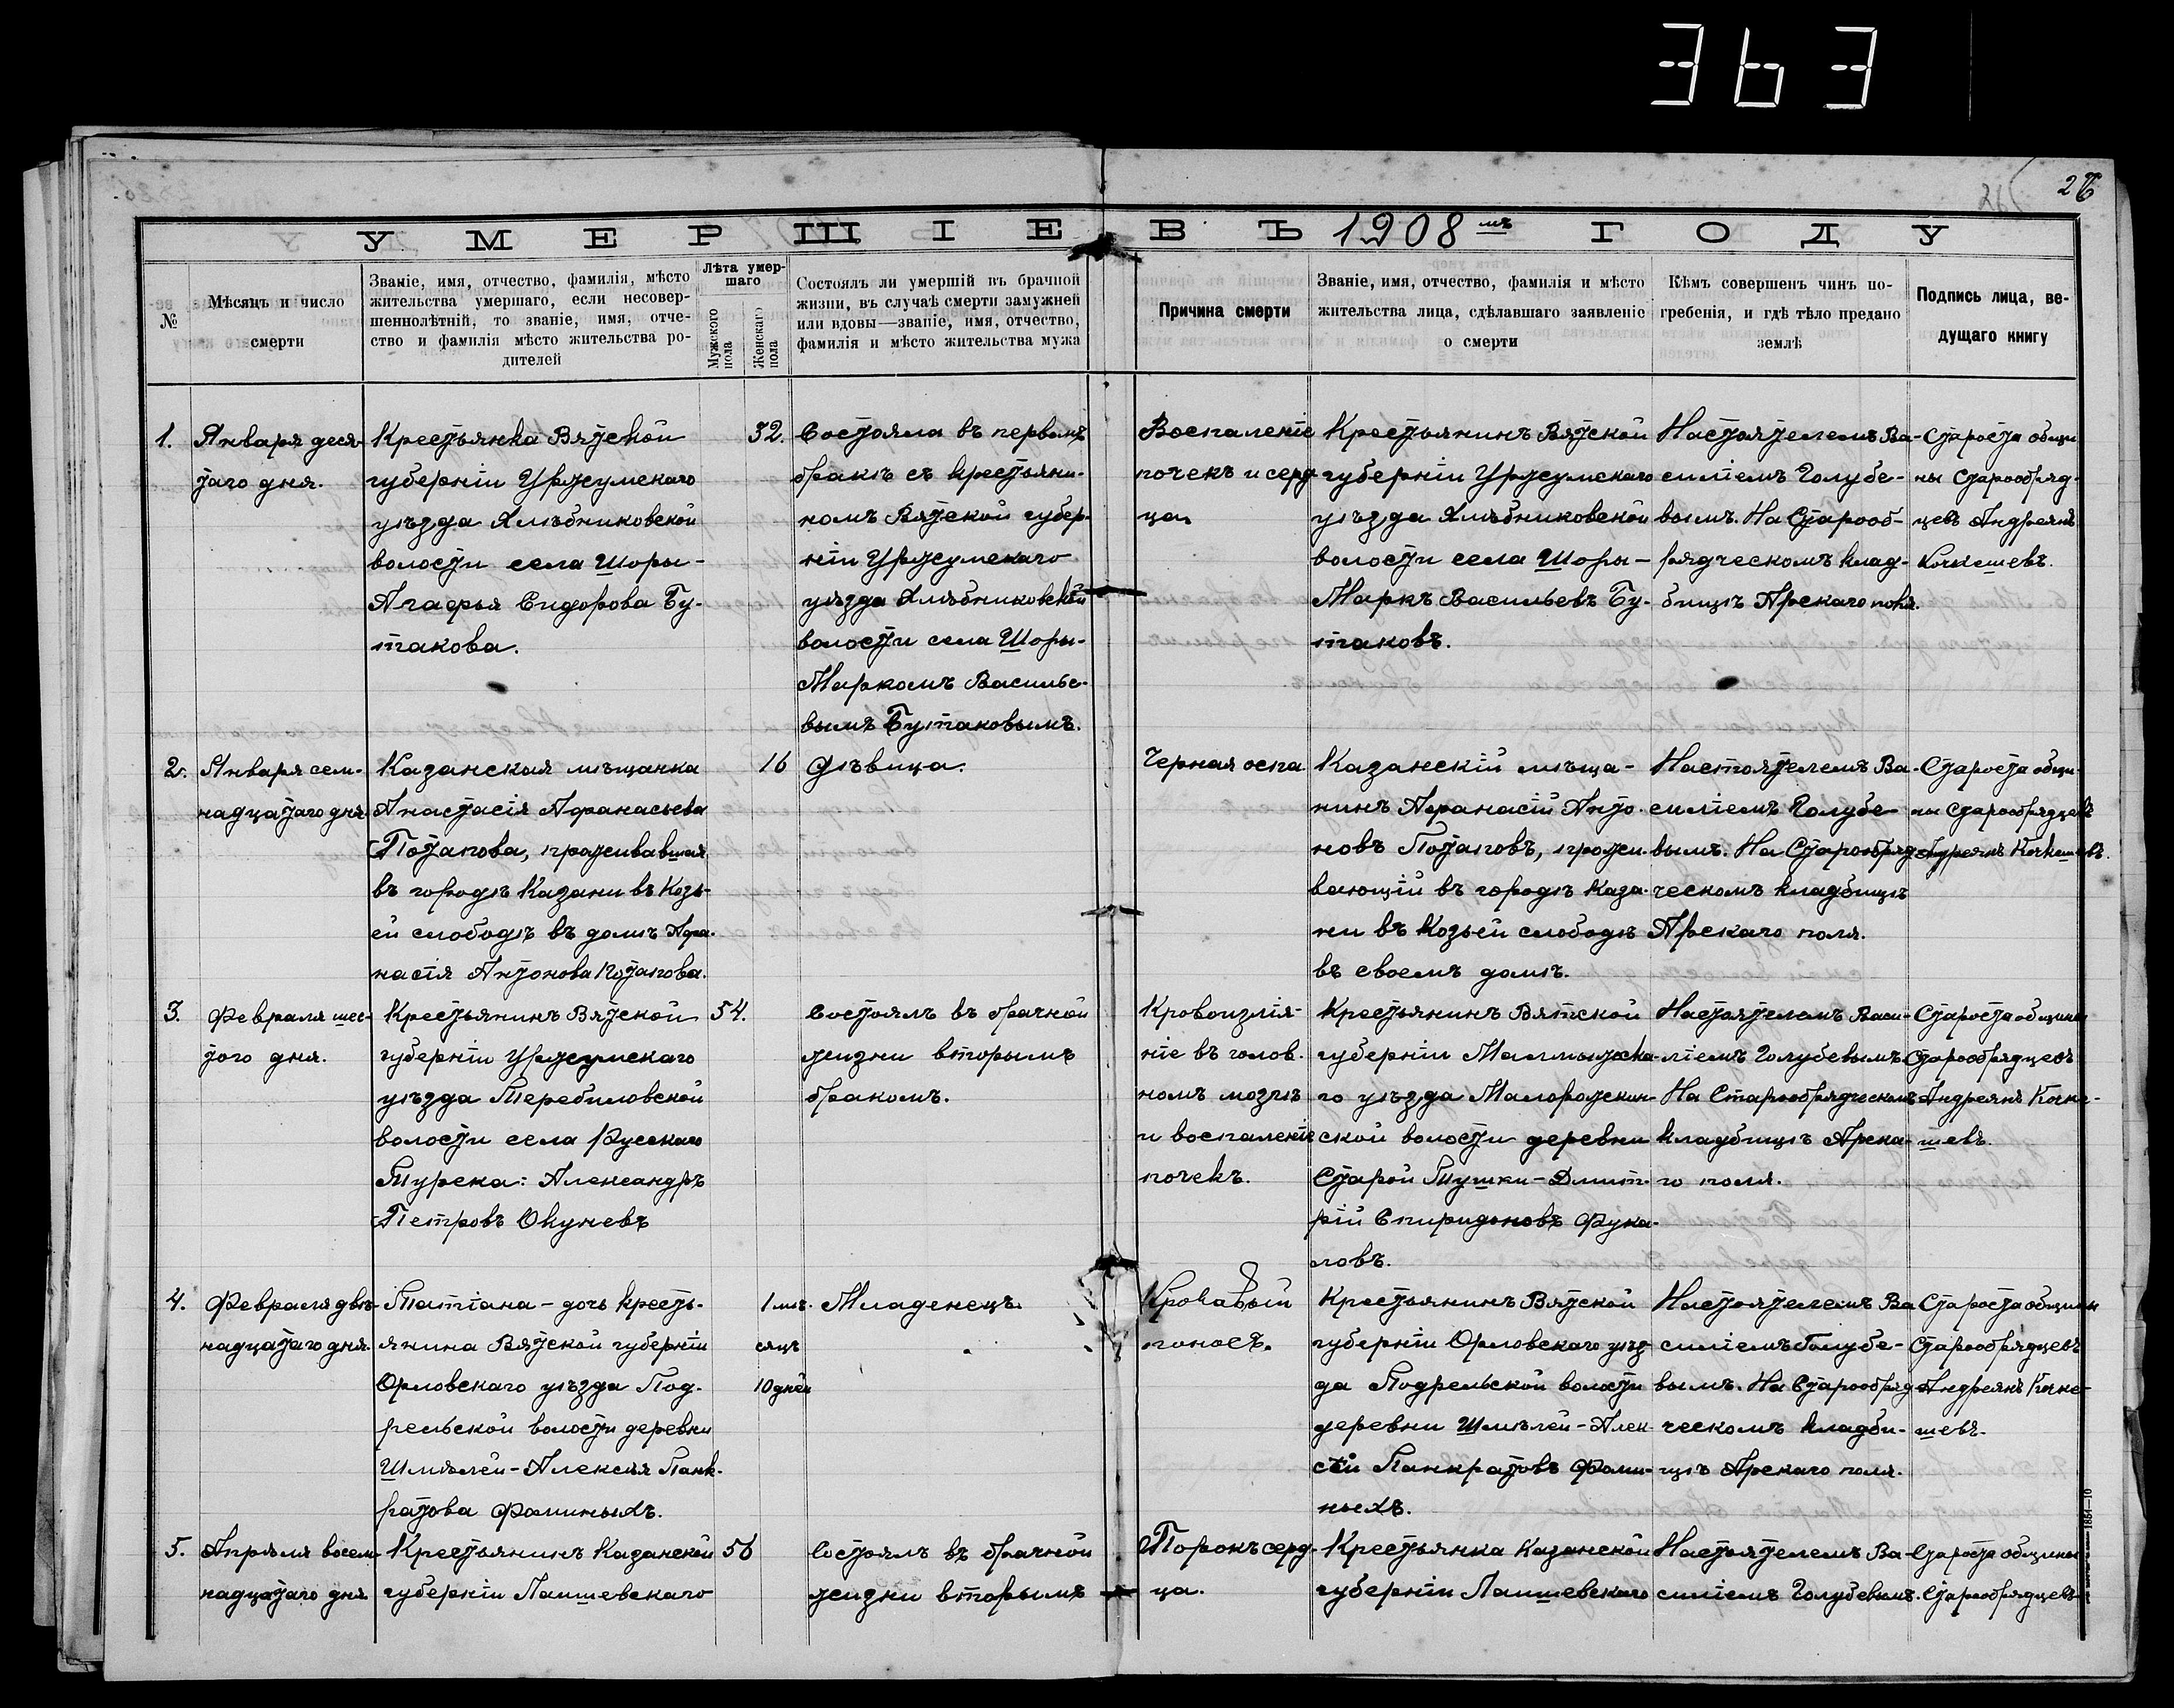 363
26
УМЕРШІЕ ВЪ 1908 мъ ГОДУ
№
Мѣсяцъ и число
смерти
Званіе, имя, отчество, фамилія, мѣсто
жительства умершаго, если несовер-
шеннолѣтній, то званіе, имя, отче-
ство и фамилія мѣсто жительства ро-
дителей
Лѣта умер-
шаго
Мужского
пола
Женскаго
пола
Состоялъ ли умершій въ брачной
жизни, въ случаѣ смерти замужней
или вдовы—званіе, имя, отчество,
фамилія и мѣсто жительства мужа
Причина смерти
Званіе, имя, отчество, фамилія и мѣсто
жительства лица, сдѣлавшаго заявленіе
о смерти
Кѣмъ совершенъ чинъ по-
гребенія, и гдѣ тѣло предано
землѣ
Подпись лица, ве-
дущаго книгу
1.
Января деся-
таго дня.
Крестьянка Вятской
губерніи Уржумскаго
уѣзда Хлѣбниковской
волости села Шоры-
Агафья Сидорова Бу-
такова.
32.
Состояла въ первомъ
бракѣ съ крестьяни-
номъ Вятской губер-
ніи Уржумскаго
уѣзда Хлѣбниковской
волости села Шоры-
Маркомъ Василье-
вымъ Бутаковымъ.
Воспаленіе
почекъ и серд-
ца.
Крестьянинъ Вятской
губерніи Уржумскаго
уѣзда Хлѣбниковской
волости села Шоры-
Маркъ Васильевъ Бу-
таковъ.
Настоятелемъ Ва-
силіемъ Голубе-
вымъ. На Старооб-
рядческомъ клад-
бищѣ Арскаго поля.
Староста общи-
ны старообряд-
цевъ Андреянъ
Кочкешевъ.
2.
Января сем-
надцатаго дня
Казанская мѣщанка
Анастасія Афанасьева
Потапова, проживавшая
въ городѣ Казани въ Козь-
ей слободѣ въ домѣ Афа-
насія Антонова Потапова.
16
Дѣвица.
Черная оспа
Казанскій мѣща-
нинъ Афанасій Анто-
новъ Потаповъ, прожи-
вающій въ городѣ Каза-
ни въ Козьей слободѣ
въ своемъ домѣ.
Настоятелемъ Ва-
силіемъ Голубе-
вымъ. На Старообряд-
ческомъ кладбищѣ
Арскаго поля.
Староста общи-
ны старообрядцевъ
Андреянъ Кочкешевъ.
3.
Февраля шес-
того дня.
Крестьянинъ Вятской
губерніи Уржумскаго
уѣзда Теребиловской
волости села Русскаго
Турека: Александръ
Петровъ Окуневъ
54.
Состоялъ въ брачной
жизни вторымъ
бракомъ.
Кровоизлія-
ніе въ голов-
номъ мозгѣ
и воспаленіе
почекъ.
Крестьянинъ Вятской
губерніи Малмыжска-
го уѣзда Малорожкин-
ской волости деревни
Старой Тушки-Дмит-
рій Спиридоновъ Фука-
ловъ.
Настоятелемъ Васи-
ліемъ Голубевымъ.
На Старообрядческомъ
кладбищѣ Арска-
го поля.
Староста общины
Старообрядцевъ
Андреянъ Кочке-
шевъ.
4.
Февраля двѣ-
надцатаго дня
Татіана-дочь кресть-
янина Вятской губерніи
Орловскаго уѣзда Под-
рельской волости деревни
Шмѣлей-Алексѣя Панк-
ратова Фоминыхъ.
1 мѣ-
сяцъ
10 дней
Младенецъ.
Кровавый
поносъ.
Крестьянинъ Вятской
губерніи Орловскаго уѣз-
да Подрельской волости
деревни Шмѣлей-Алек-
сѣй Панкратовъ Фоми-
ныхъ.
Настоятелемъ Ва
силіемъ Голубе-
вымъ. На Старообряд-
ческомъ кладби-
щѣ Арскаго поля.
Староста общины
Старообрядцевъ
Андреянъ Кочке-
шевъ.
5.
Апрѣля восем-
надцатаго дня
Крестьянинъ Казанской
губерніи Лаишевскаго
56
Состоялъ въ брачной
жизни вторымъ
Порокъ серд-
ца.
Крестьянка Казанской
губерніи Лаишевскаго
Настоятелемъ Ва-
силіемъ Голубевымъ.
Староста общины
Старообрядцевъ
1854—10